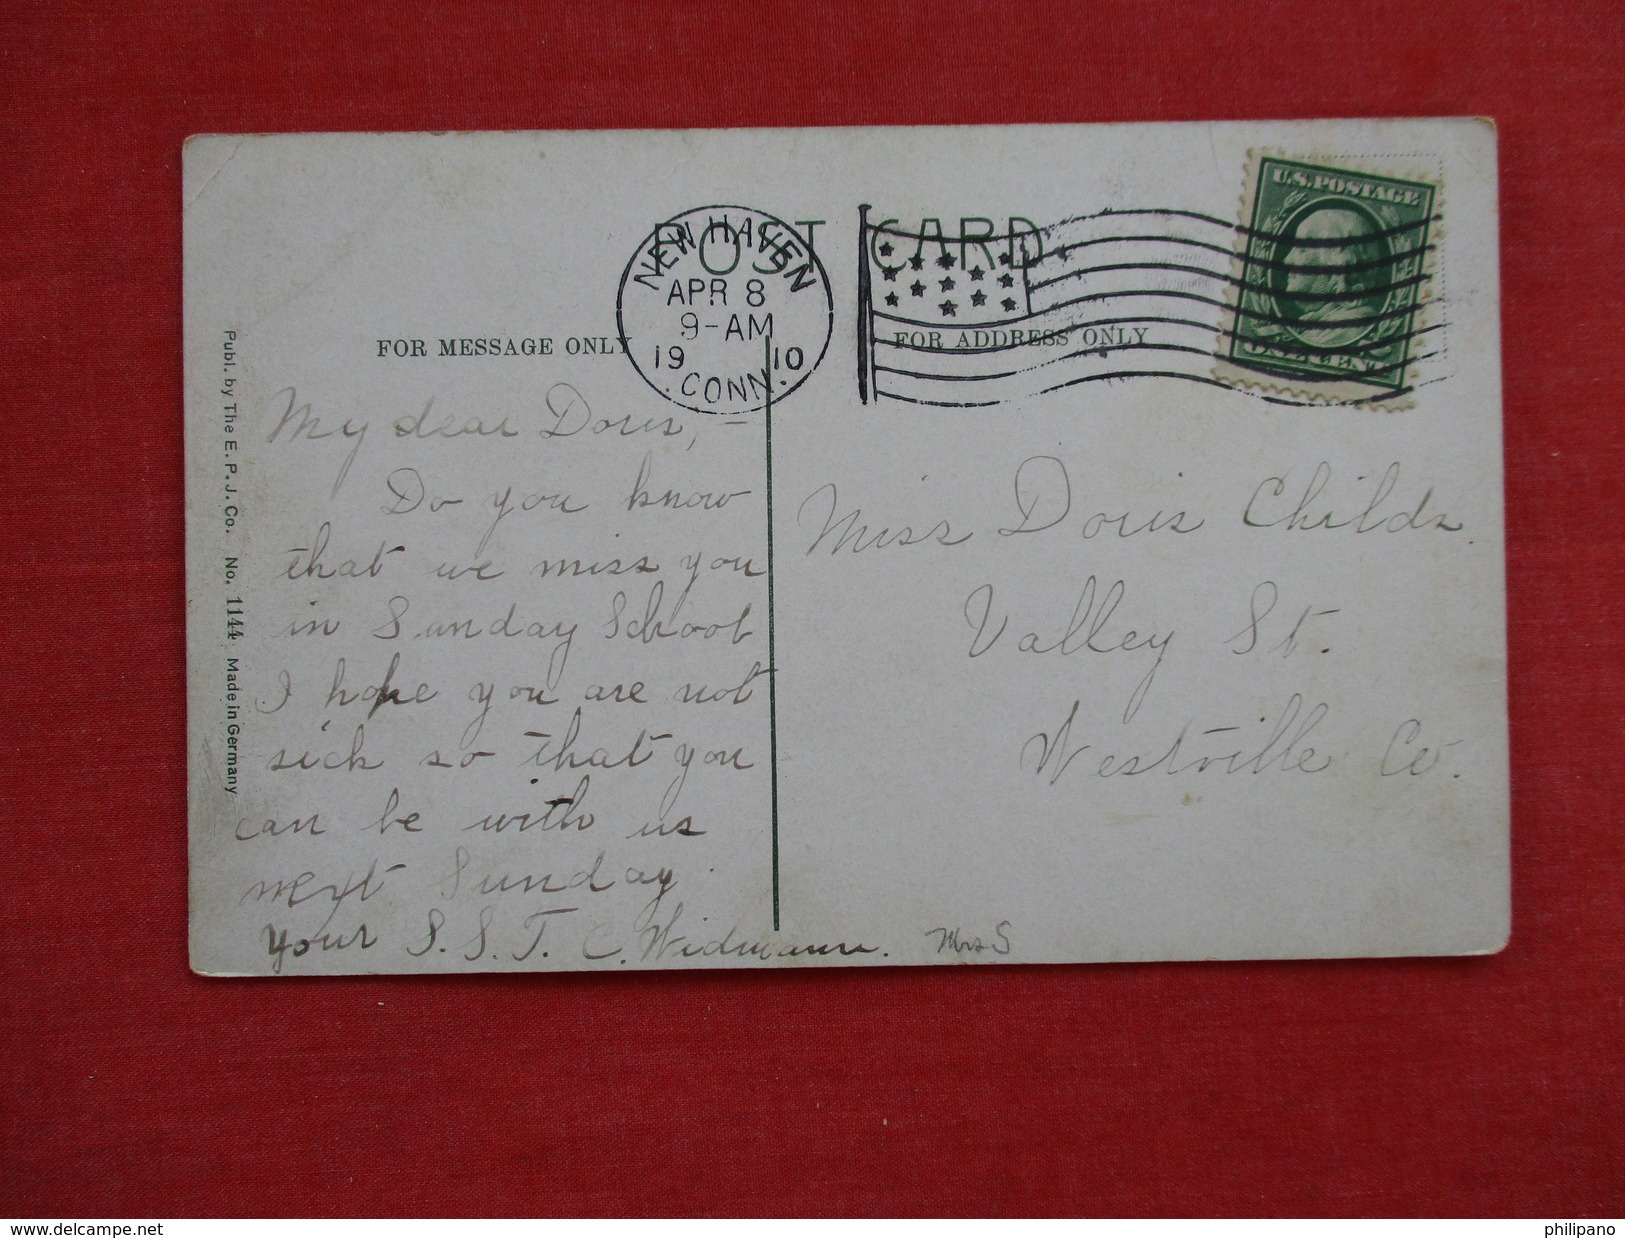 POST CARD
NEW HAVEN
APR 8
9-AM
19 10
CONN.
U.S. POSTAGE
FOR MESSAGE ONLY
FOR ADDRESS ONLY
Publ. by The E. P. J. Co. No. 1144 Made in Germany
My dear Doris, –
Do you know
that we miss you
in Sunday School
I hope you are not
sick so that you
can be with us
next Sunday.
Your S. S. T. C. Widmann.
Miss Doris Childs.
Valley St.
Westville Co.
www.delcampe.net
philipano